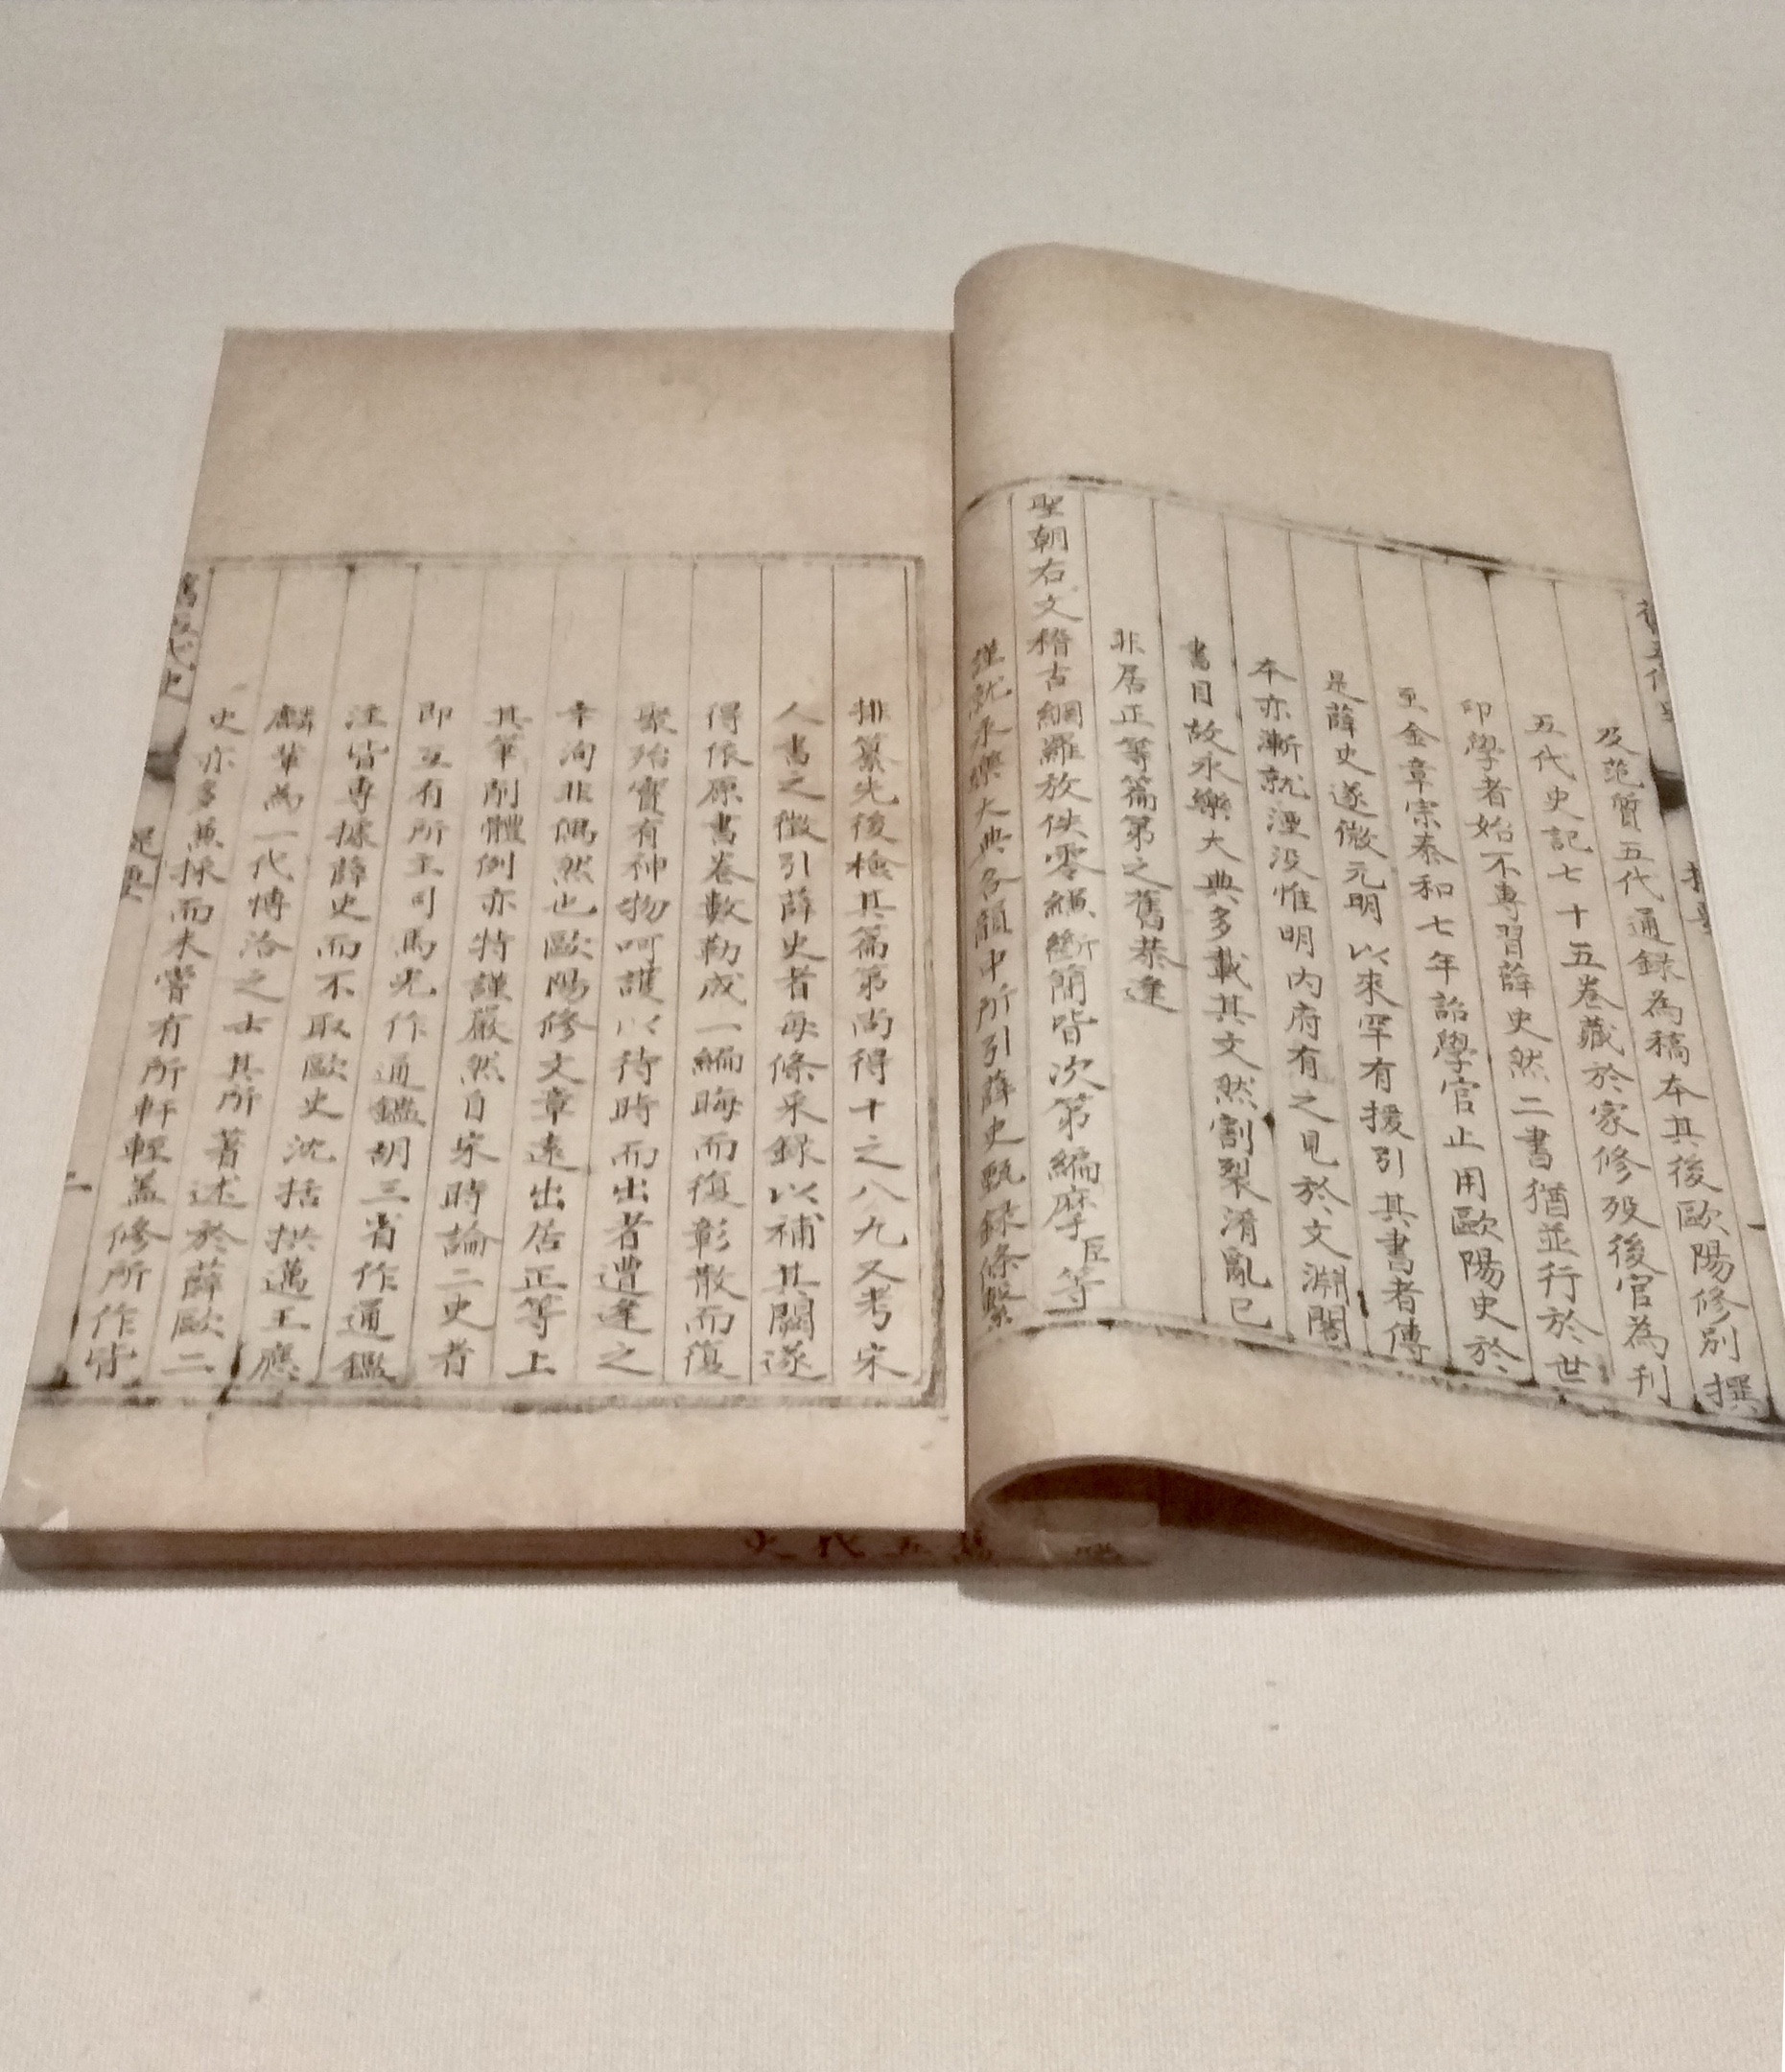 舊五代史
及范質五代通錄為稿本其後歐陽修别撰
五代史記七十五卷藏於家修殁後官為刊
印學者始不專習薛史然二書猶並行於世
至金章宗泰和七年詔學官止用歐陽史於
是薛史遂微元明以來罕有援引其書者傳
本亦漸就湮没惟明内府有之見於文淵閣
書目故永樂大典多載其文然割裂淆亂已
非居正等篇第之舊恭逢
聖朝右文稽古網羅放佚零縑斷簡皆次第編摩臣等
謹就永樂大典各韻中所引薛史甄錄條繫
排纂先後檢其篇第尚得十之八九又考宋
人書之徵引薛史者每條采錄以補其闕遂
得依原書卷數勒成一編晦而復彰散而復
聚殆實有神物呵護以待時而出者遭逢之
幸洵非偶然也歐陽修文章遠出居正等上
其筆削體例亦特謹嚴然自宋時論二史者
即互有所主司馬光作通鑑胡三省作通鑑
注皆專據薛史而不取歐史沈括洪邁王應
麟輩為一代博洽之士其所著述於薛歐二
史亦多兼採而未嘗有所軒輊蓋修所作皆
舊五代史
提要
二
舊五代史